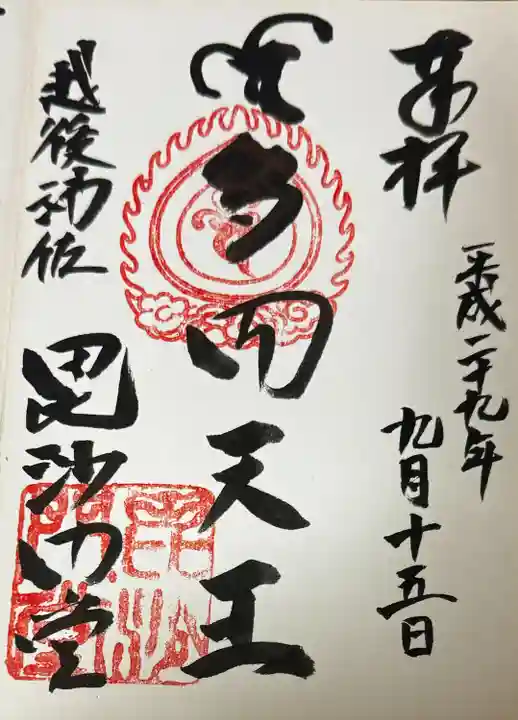 奉拝
平成二十九年
九月十五日
多聞天王
越後浦佐
毘沙門堂